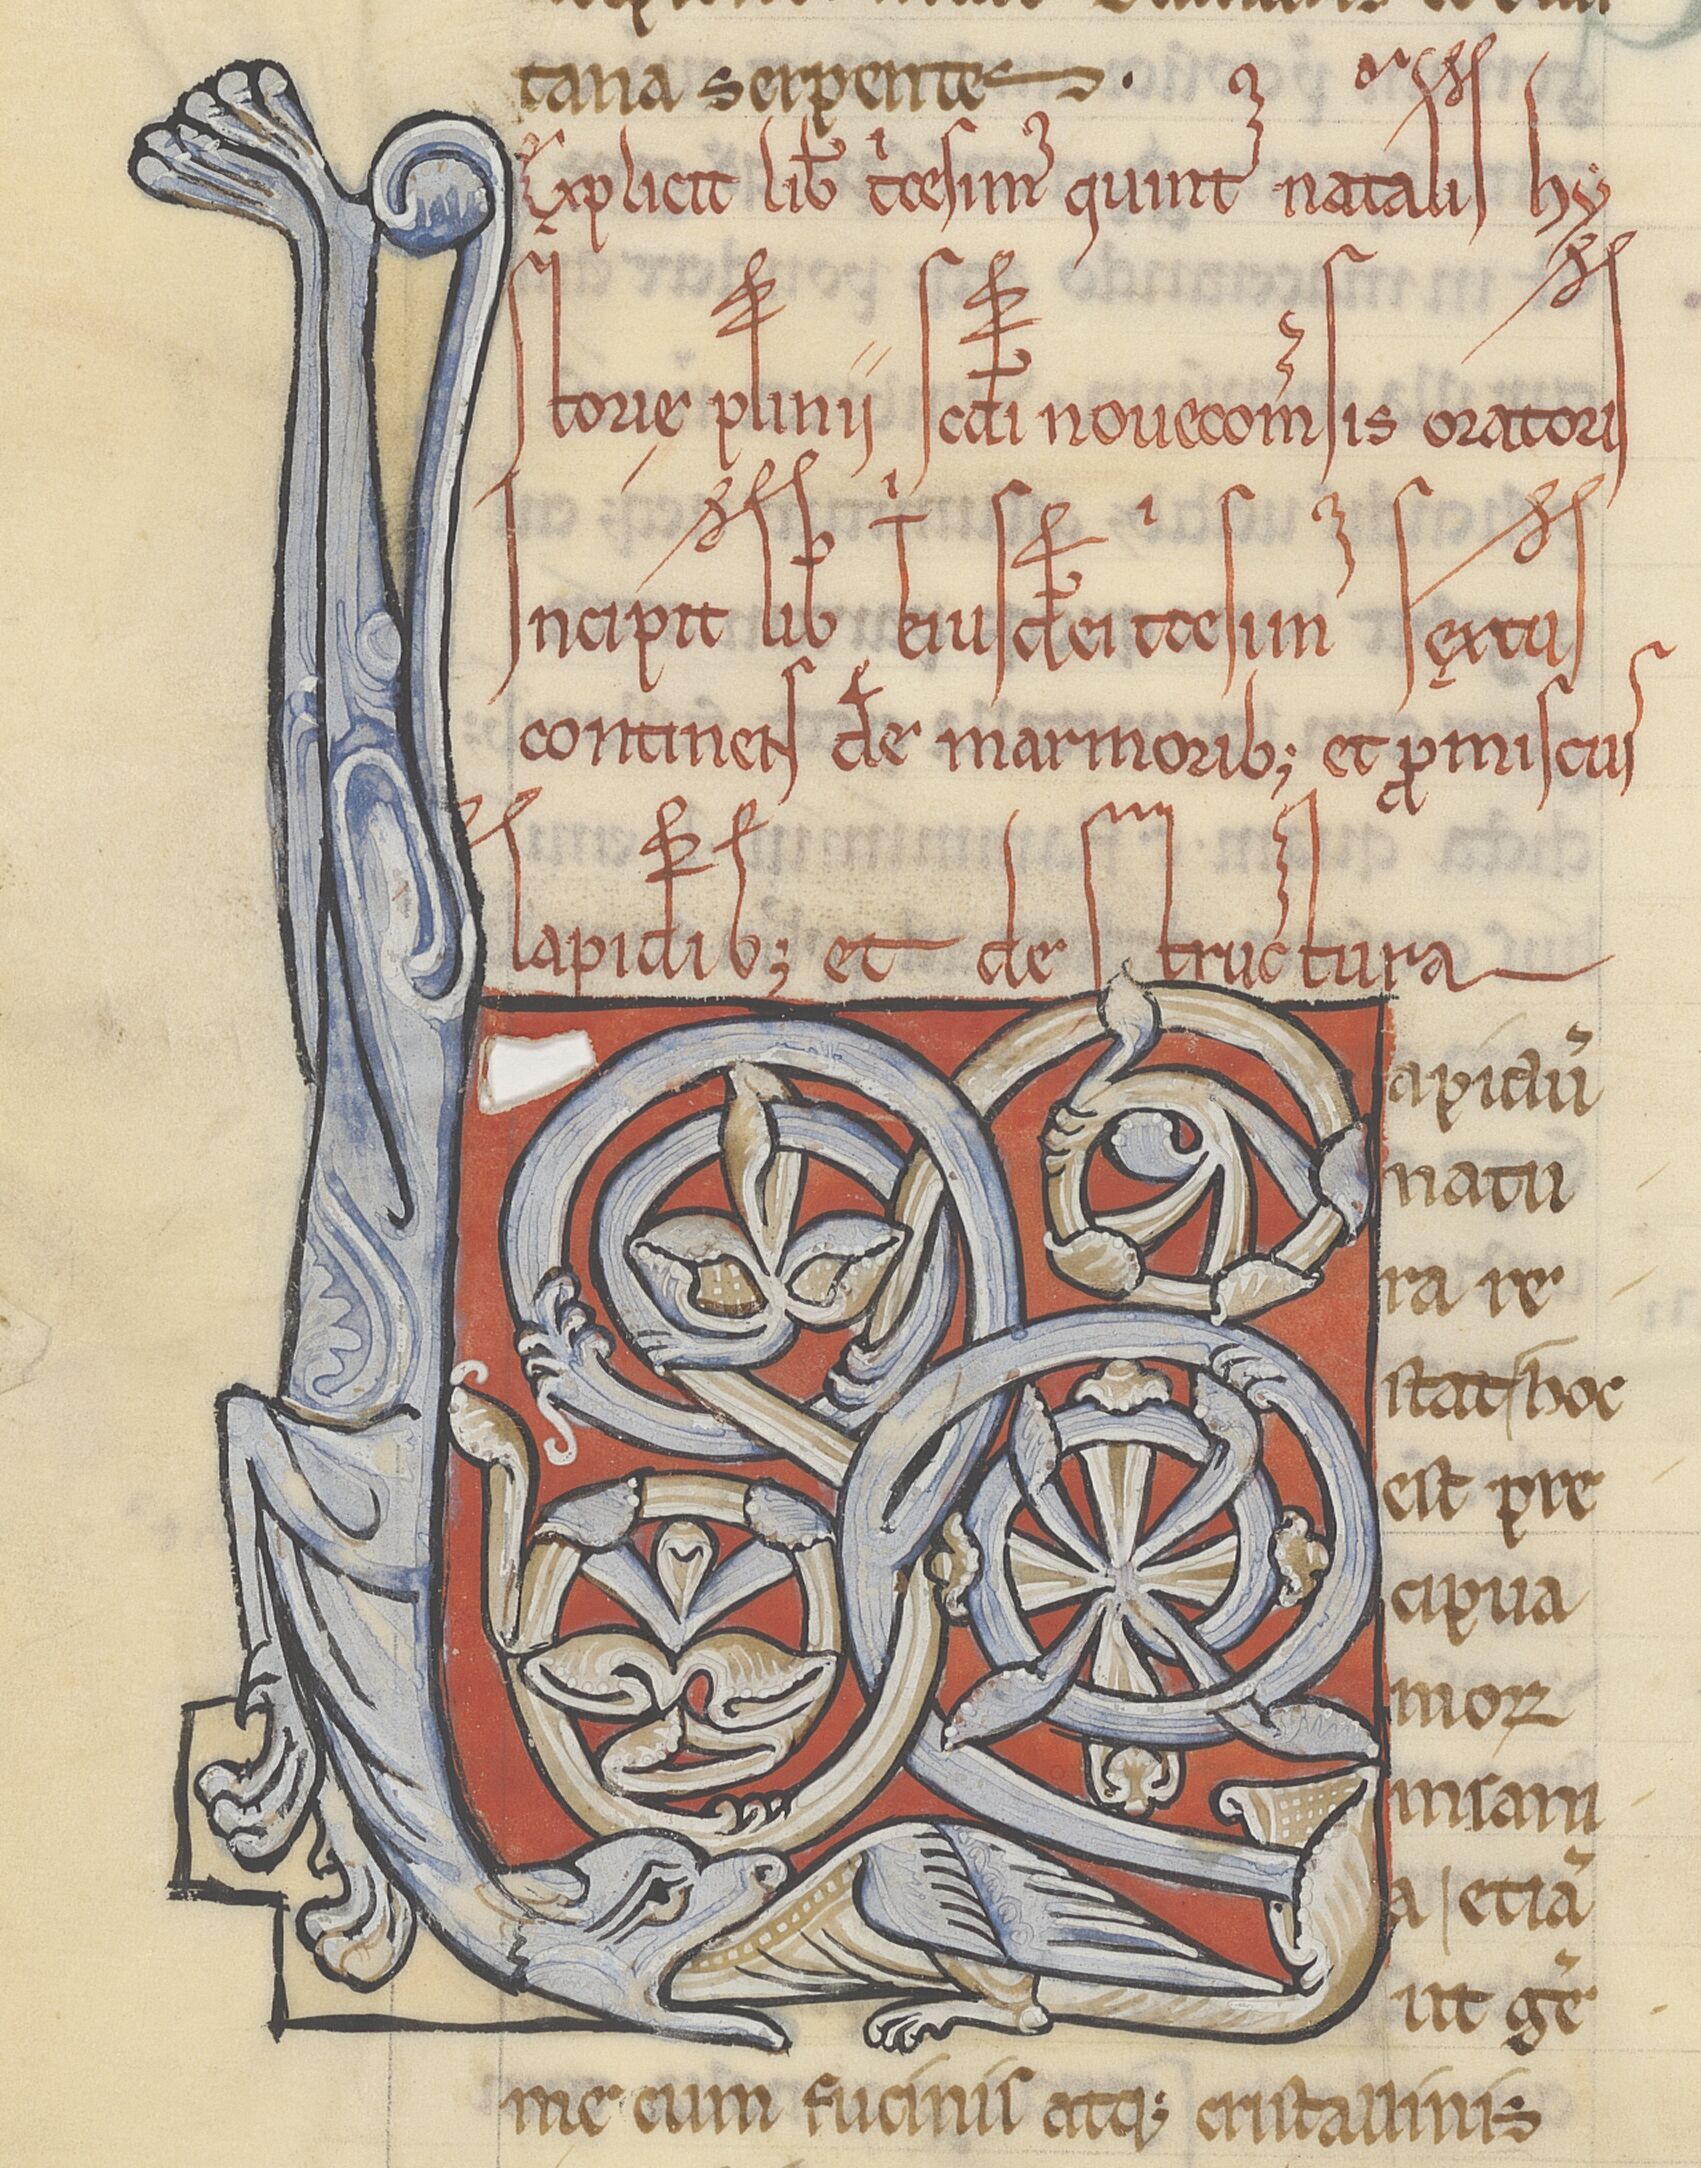 tana serpente.
Explicit lib tcesim quint natalis hy
storie plinii scdi nouecomsis oratoris
Incipit lib eiusdei tcesim sextus
continens de marmorib; et pmiscuis
lapidib; et de structura
apidū
natu
ra re
stat hoc
est pre
cipua
mor
insani
a etiā
ut gē
me cum fucinis atq; cristallinis